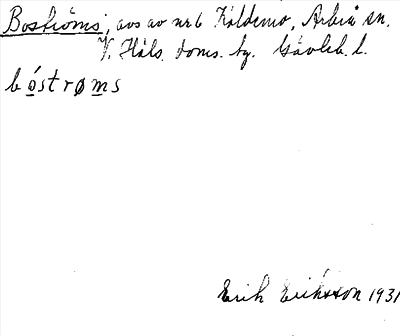 Boströms, avs av nr 6 Käldemo, Arbrå sn.
V. Häls. doms. hg. Gävleb. l.
bóstrøms
Erik Eriksson 1931